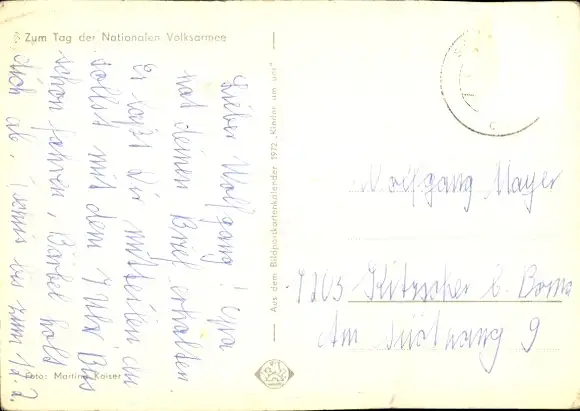 Zum Tag der Nationalen Volksarmee
Lieber Wolfgang! Opa
hat deinen Brief erhalten.
Er läßt dir mitteilen, du
sollst mit dem 7 Uhr Bus
schon fahren, Bärbel holt
dich ab. bis zum 12.2.
Foto: Martina Kaiser
Aus dem Bildpostkartenkalender 1972 „Kinder um uns"
Wolfgang Mayer
7203 Kitzscher b. Borna
Am Südhang 9